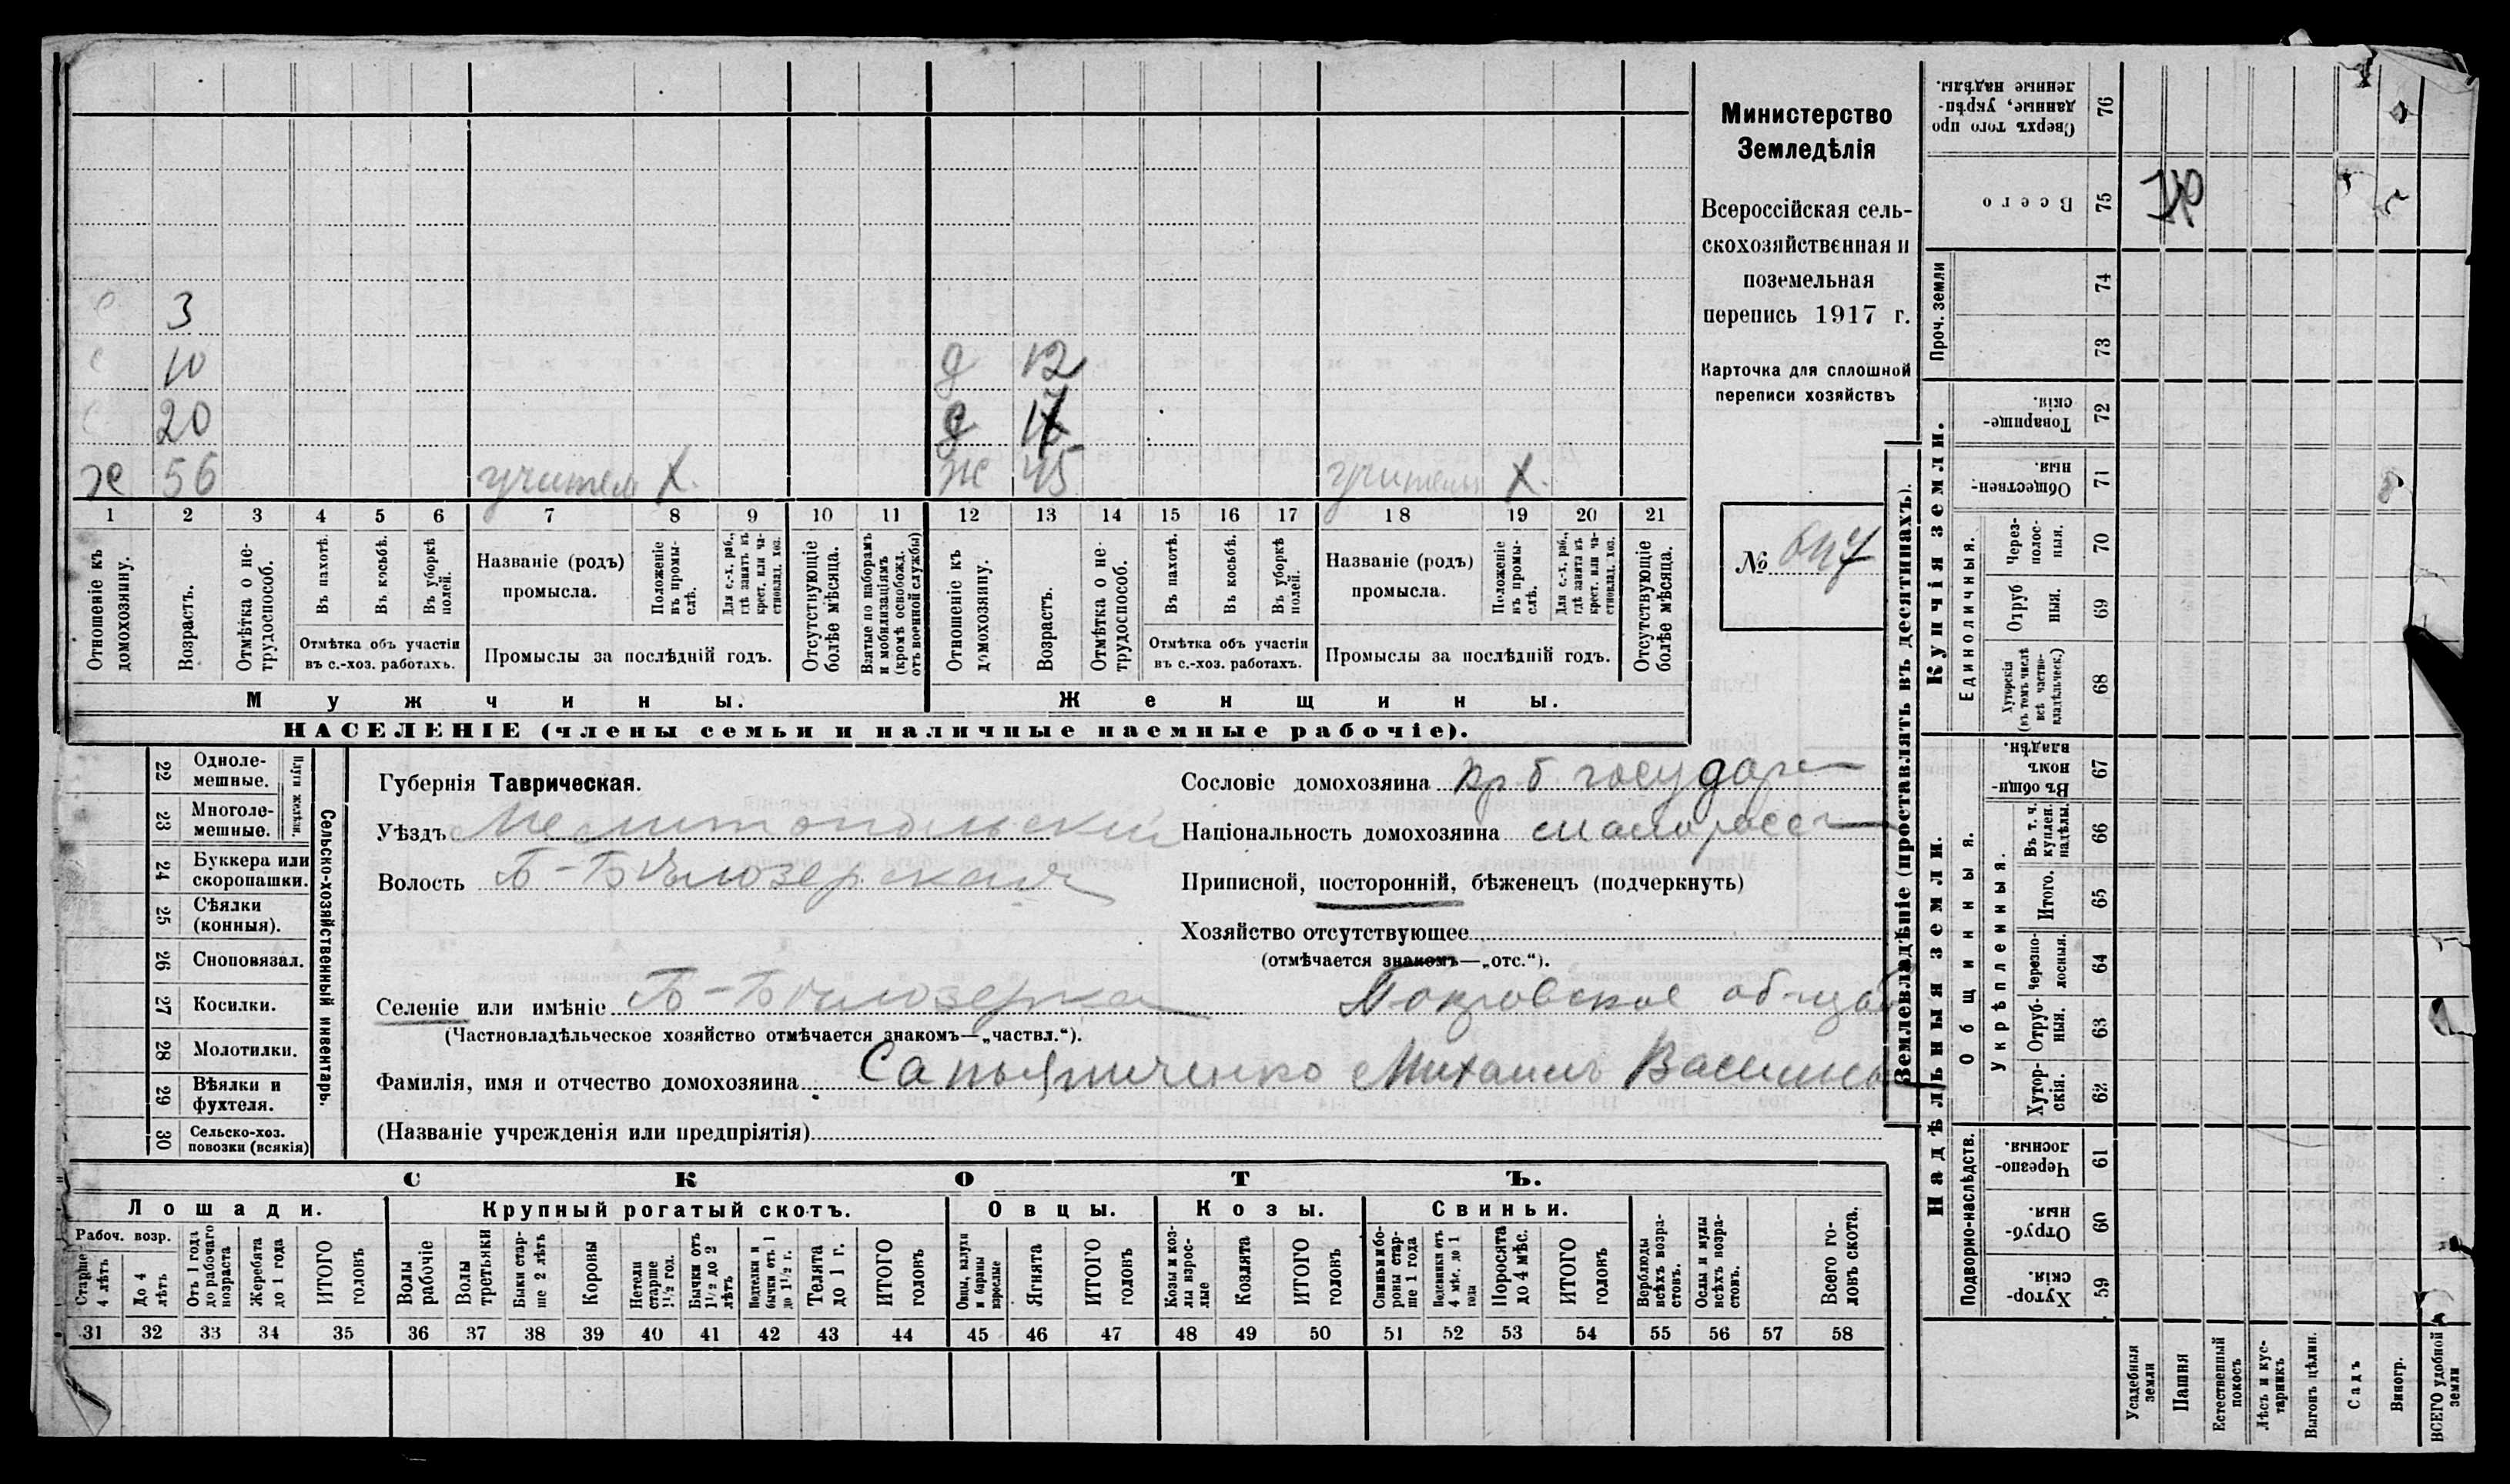 Министерство
Земледѣлія
Всероссійская сель-
скохозяйственная и
поземельная
перепись 1917 г.
Карточка для сплошной
переписи хозяйствъ
№
с 3
с 10 д 12
с 20 д
х 56 учител Х. ж 45 учитель Х.
1 2 3 4 5 6 7 8 9 10 11 12 13 14 15 16 17 18 19 20 21
Отношеніе къ домохозяину.
Возрастъ.
Отмѣтка о не-трудоспособ.
Въ пахотѣ.
Въ косьбѣ.
Въ уборкѣ полей.
Отмѣтка объ участіи
въ с.-хоз. работахъ.
Названіе (родъ)
промысла.
Положеніе въ промы-слѣ.
Для с.-х. раб., гдѣ занятъ въ крест. или ча-стновлад. хоз.
Промыслы за послѣдній годъ.
Отсутствующіе болѣе мѣсяца.
Взятые по наборамъ и мобилизаціямъ (кромѣ освобожд. отъ военной службы)
Отношеніе къ домохозяину.
Возрастъ.
Отмѣтка о не-трудоспособ.
Въ пахотѣ.
Въ косьбѣ.
Въ уборкѣ полей.
Отмѣтка объ участіи
въ с.-хоз. работахъ.
Названіе (родъ)
промысла.
Положеніе въ промы-слѣ.
Для с.-х. раб., гдѣ занята въ крест. или ча-стновлад. хоз.
Промыслы за послѣдній годъ.
Отсутствующіе болѣе мѣсяца.
Мужчины. Женщины.
НАСЕЛЕНІЕ (члены семьи и наличные наемные рабочіе).
Сельско-хозяйственный инвентарь.
Плуги желѣзн.
22 Одноле-мешные.
23 Многоле-мешные.
24 Буккера или скоропашки.
25 Сѣялки (конныя).
26 Сноповязал.
27 Косилки.
28 Молотилки.
29 Вѣялки и фухтеля.
30 Сельско-хоз. повозки (всякія)
Губернія Таврическая.
Уѣздъ Мелитопольскій
Волость Б-Бѣлозерская
Селеніе или имѣніе Б-Бѣлозерка Покровское общ
(Частновладѣльческое хозяйство отмѣчается знакомъ—„частвл.“).
Фамилія, имя и отчество домохозяина Михаилъ Василь
(Названіе учрежденія или предпріятія)
Сословіе домохозяина кр. б. государ
Національность домохозяина малоросс
Приписной, посторонній, бѣженецъ (подчеркнуть)
Хозяйство отсутствующее
(отмѣчается знакомъ—„отс.“).
СКОТЪ.
Лошади. Крупный рогатый скотъ. Овцы. Козы. Свиньи.
Рабоч. возр.
Старше 4 лѣтъ
До 4 лѣтъ
Отъ 1 года до рабочаго возраста
Жеребята до 1 года
ИТОГО головъ
Волы рабочіе
Волы третьяки
Быки стар-ше 2 лѣтъ
Коровы
Нетели старше 1½ год.
Бычки отъ 1½ до 2 лѣтъ
Подтелки и бычки отъ 1 до 1½ г.
Телята до 1 г.
ИТОГО головъ
Овцы, валухи и бараны взрослые
Ягнята
ИТОГО головъ
Козы и коз-лы взрос-лые
Козлята
ИТОГО головъ
Свиньи и бо-ровы стар-ше 1 года
Подсвинки отъ 4 мѣс. до 1 года
Поросята до 4 мѣс.
ИТОГО головъ
Верблюды всѣхъ возра-стовъ.
Ослы и мулы всѣхъ возра-стовъ.
Всего го-ловъ скота.
31 32 33 34 35 36 37 38 39 40 41 42 43 44 45 46 47 48 49 50 51 52 53 54 55 56 57 58
Землевладѣніе (проставлять въ десятинахъ).
Надѣльныя земли. Купчія земли. Проч. земли
Подворно-наслѣдств.
Общинныя.
Укрѣпленныя.
Единоличныя.
Сверхъ того про данные, укрѣп-ленные надѣлы. 76
Всего 75
74
73
Товарище-скія. 72
Обществен-ныя. 71
Через-полос-ныя. 70
Отруб ныя. 69
Хуторскія (въ томъ числѣ всѣ частно-владѣльческ.) 68
Въ общин-номъ владѣн. 67
Въ т. ч. куплен. надѣлы. 66
Итого. 65
Черезпо-лосныя. 64
Отруб-ныя. 63
Хутор-скія. 62
Черезпо-лосныя. 61
Отруб-ныя. 60
Хутор-скія. 59
Усадебныя земли
Пашня
Естественный покосъ
Лѣсъ и кус-тарникъ
Выгонъ цѣлин.
Садъ
Виногр.
ВСЕГО удобной земли